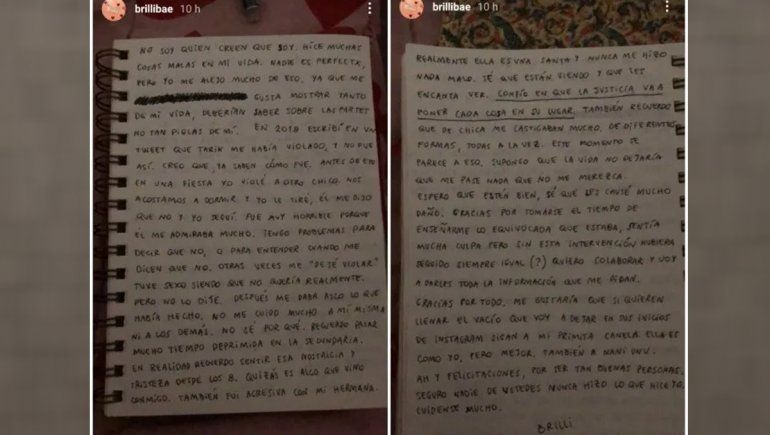 brillibae 10 h
NO SOY QUIEN CREEN QUE SOY. HICE MUCHAS
COSAS MALAS EN MI VIDA. NADIE ES PERFECTX,
PERO YO ME ALEJO MUCHO DE ESO, YA QUE ME
GUSTA MOSTRAR TANTO
DE MI VIDA, DEBERÍAN SABER SOBRE LAS PARTES
NO TAN PIOLAS DE MÍ. EN 2018 ESCRIBÍ EN UN
TWEET QUE TARIK ME HABÍA VIOLADO, Y NO FUE
ASÍ. CREO QUE YA SABEN CÓMO FUE. ANTES DE ESO
EN UNA FIESTA YO VIOLÉ A OTRO CHICO. NOS
ACOSTAMOS A DORMIR Y YO LE TIRÉ, ÉL ME DIJO
QUE NO Y YO SEGUÍ. FUE MUY HORRIBLE PORQUE
ÉL ME ADMIRABA MUCHO. TENGO PROBLEMAS PARA
DECIR QUE NO, O PARA ENTENDER CUANDO ME
DICEN QUE NO. OTRAS VECES ME "DEJÉ VIOLAR"
TUVE SEXO SIENDO QUE NO QUERÍA REALMENTE.
PERO NO LO DIJE. DESPUÉS ME DABA ASCO LO QUE
HABÍA HECHO. NO ME CUIDO MUCHO A MÍ MISMA
NI A LOS DEMÁS. NO SÉ POR QUÉ. RECUERDO PASAR
MUCHO TIEMPO DEPRIMIDA EN LA SECUNDARIA.
EN REALIDAD RECUERDO SENTIR ESA NOSTALGIA Y
TRISTEZA DESDE LOS 8. QUIZÁS ES ALGO QUE VINO
CONMIGO. TAMBIÉN FUI AGRESIVA CON MI HERMANA.
brillibae 10 h
REALMENTE ELLA ES UNA SANTA Y NUNCA ME HIZO
NADA MALO. SÉ QUE ESTÁN VIENDO Y QUE LES
ENCANTA VER. CONFÍO EN QUE LA JUSTICIA VA A
PONER CADA COSA EN SU LUGAR. TAMBIÉN RECUERDO
QUE DE CHICA ME CASTIGABAN MUCHO. DE DIFERENTES
FORMAS, TODAS A LA VEZ. ESTE MOMENTO SE
PARECE A ESO. SUPONGO QUE LA VIDA NO DEJARÍA
QUE ME PASE NADA QUE NO ME MEREZCA.
ESPERO QUE ESTÉN BIEN, SÉ QUE LES CAUSÉ MUCHO
DAÑO. GRACIAS POR TOMARSE EL TIEMPO DE
ENSEÑARME LO EQUIVOCADA QUE ESTABA, SENTÍA
MUCHA CULPA PERO SIN ESTA INTERVENCIÓN HUBIERA
SEGUIDO SIEMPRE IGUAL (?) QUIERO COLABORAR Y VOY
A DARLES TODA LA INFORMACIÓN QUE ME PIDAN.
GRACIAS POR TODO. ME GUSTARÍA QUE SI QUIEREN
LLENAR EL VACÍO QUE VOY A DEJAR EN SUS INICIOS
DE INSTAGRAM SIGAN A MI PRIMITA CANELA. ELLA ES
COMO YO, PERO MEJOR. TAMBIÉN A NANI UWU.
AH Y FELICITACIONES, POR SER TAN BUENAS PERSONAS.
SEGURO NADIE DE USTEDES NUNCA HIZO LO QUE HICE YO.
CUÍDENSE MUCHO.
BRILLI